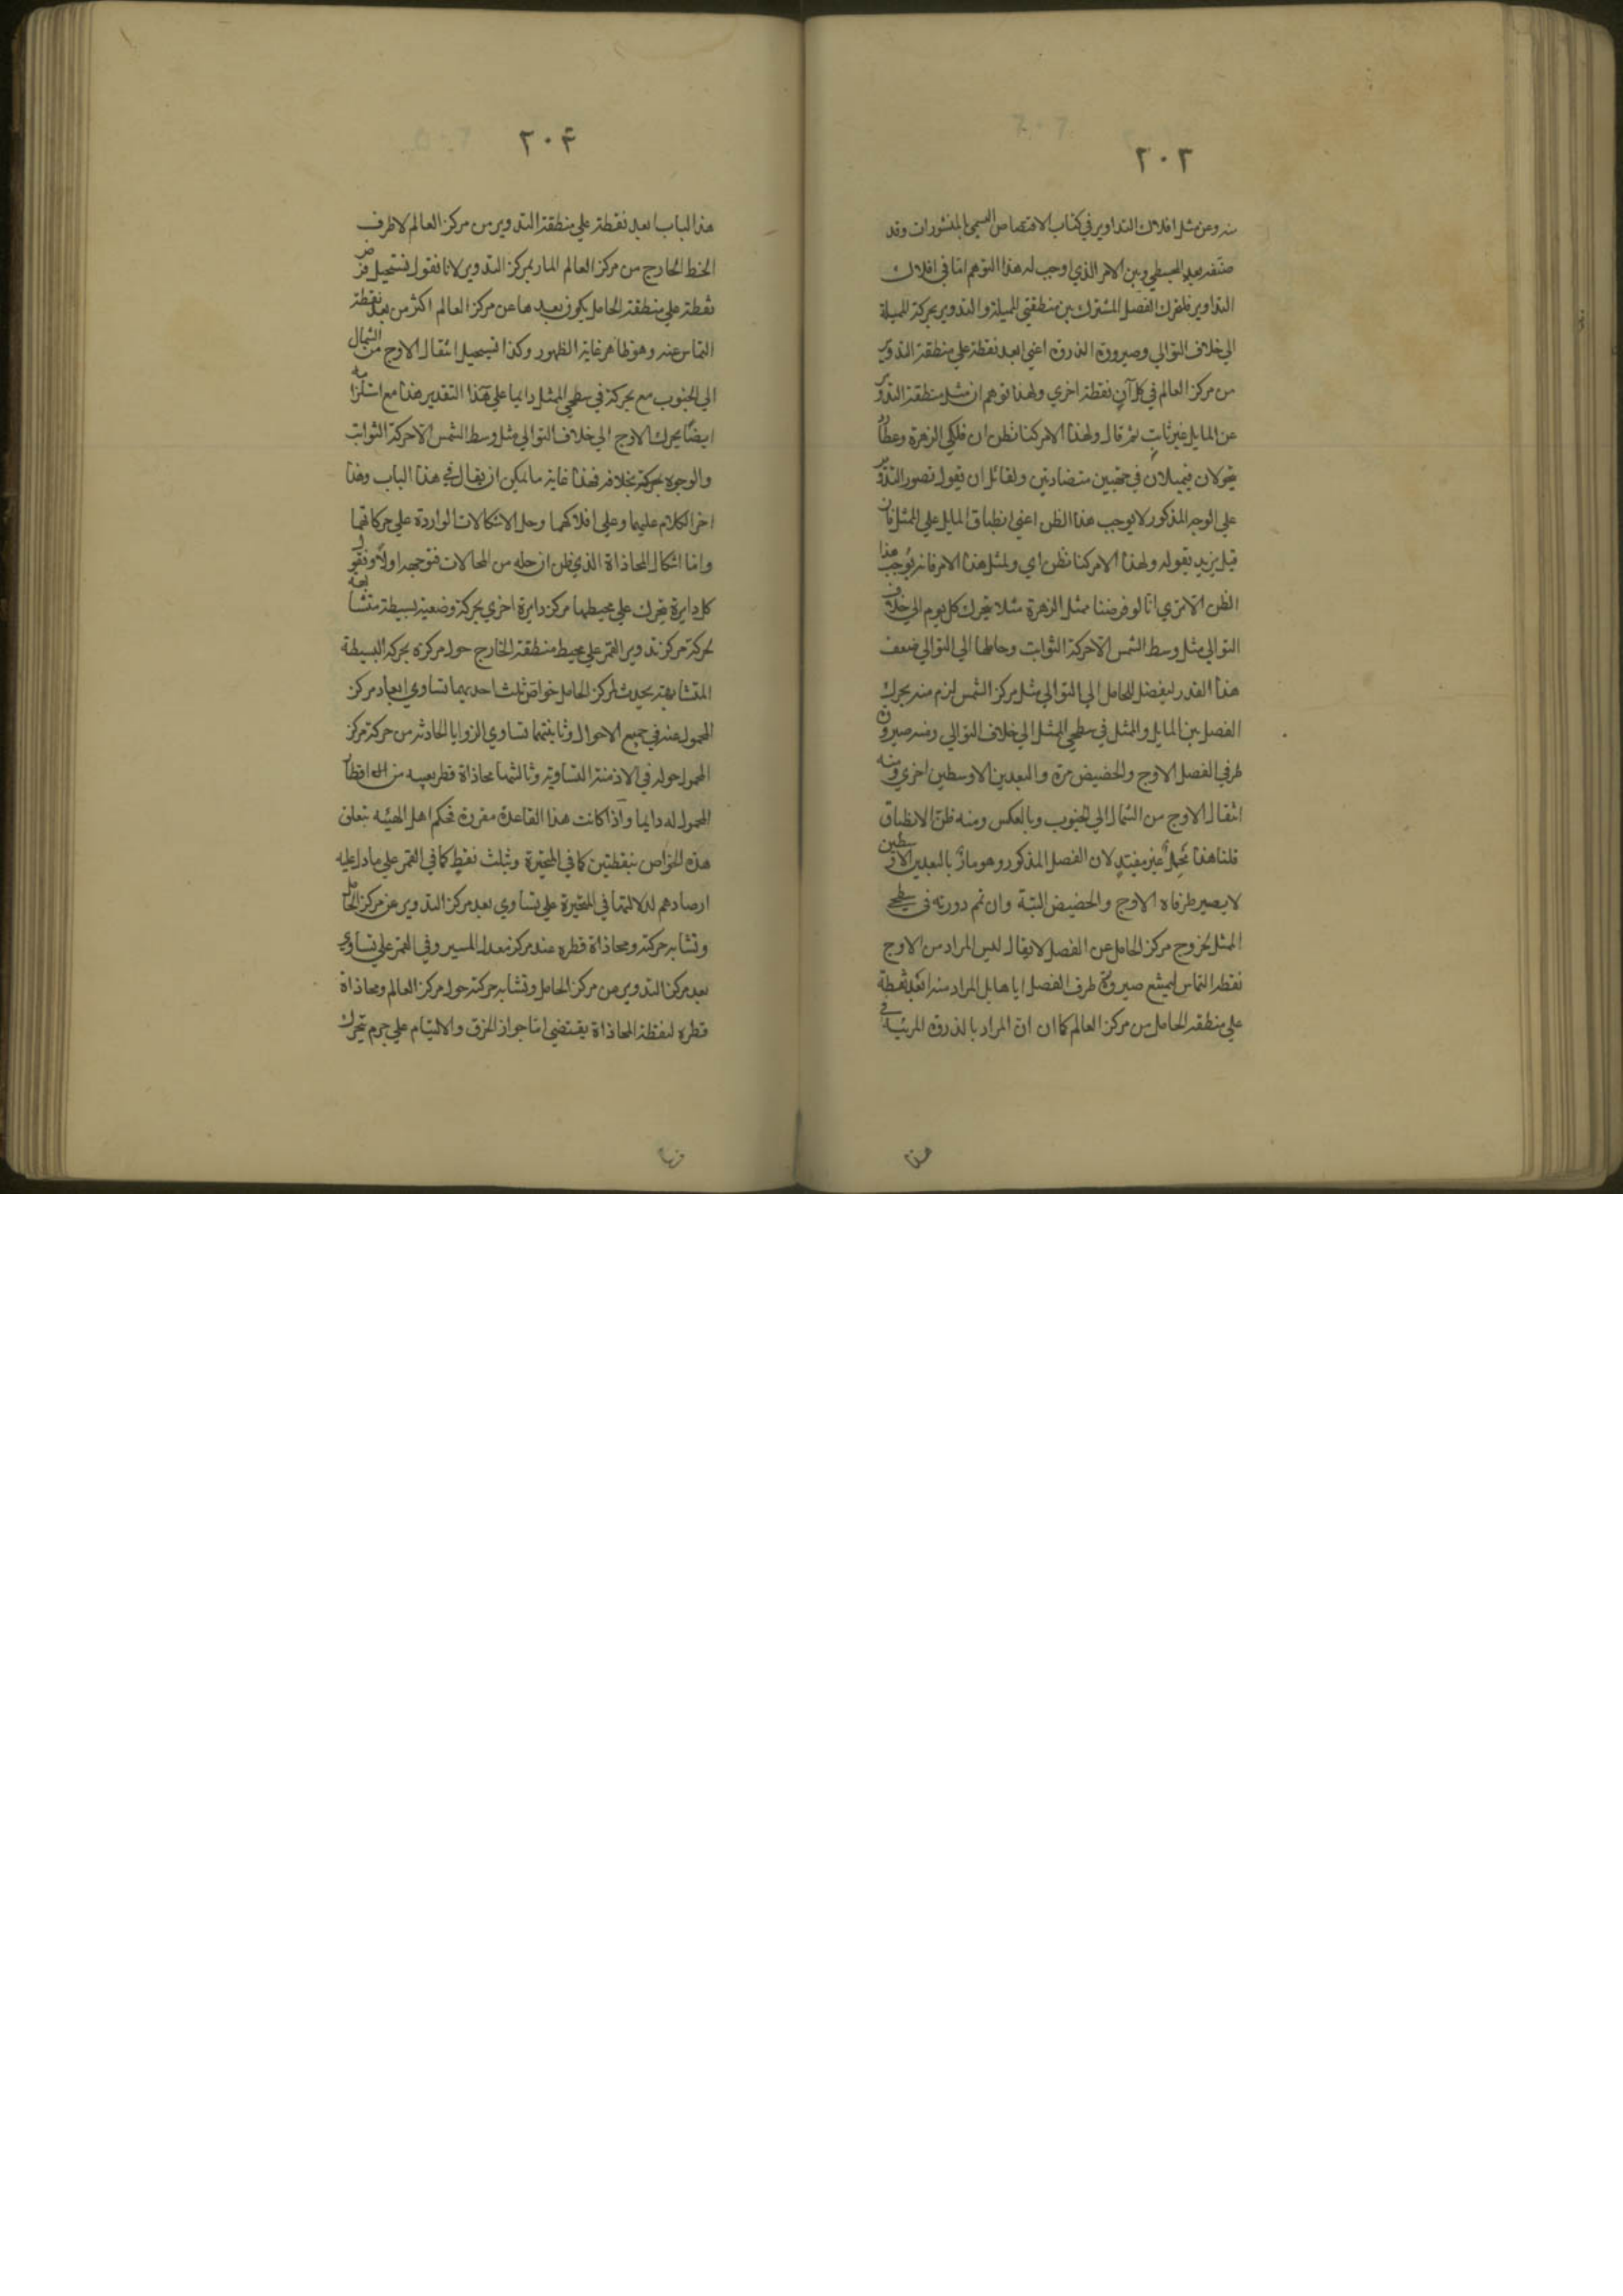 ٢٠٣
منه وعن مثل افلاك التداوير في كتاب الاقتصاص المسمى بالمنشورات وقد
صنفه بعد المجسطي وبين الامر الذي اوجب له هذا التوهم اما في افلاك
التداوير فلتحرك الفصل المشترك بين منطقتي المميلة والتدوير بحركة المميلة
الي خلاف التوالي وصيرورة الذروة اعني ابعد نقطة علي منطقة التدوير
من مركز العالم في كل آن نقطة اخري ولهذا توهم ان مثل منطقة التدوير
عن المايل غير ثابت ثم قال ولهذا الامر كنا نظن ان فلكي الزهرة وعطارد
يتحركان فيميلان في جهتين متضادتين ولقائل ان يقول تصور التدوير
علي الوجه المذكور لا يوجب هذا الظن اعني انطباق المايل علي الممثل فان
قيل يريد بقوله ولهذا الامر كنا نظن اي ولمثل هذا الامر فانه يوجب هذا
الظن الا تري انا لو فرضنا ممثل الزهرة مثلا يتحرك كل يوم الي خلاف
التوالي مثل وسط الشمس الا حركة الثوابت وحاملها الي التوالي ضعف
هذا القدر ليفضل للحامل الي التوالي مثل مركز الشمس لزم منه تحرك
الفصل بين المايل والممثل في سطحي الممثل الي خلاف التوالي ومنه صيرورة
طرفي الفصل الاوج والحضيض مرة والبعدين الاوسطين اخري ومنه
انتقال الاوج من الشمال الي الجنوب وبالعكس ومنه ظن الانطباق
قلنا هذا تمحل غير مفيد لان الفصل المذكور وهو مار بالبعدين الاوسطين
لا يصير طرفاه الاوج والحضيض البتة وان تم دورته في سطح
الممثل لخروج مركز الحامل عن الفصل لا يقال ليس المراد من الاوج
نقطة التماس ليمتنع صيرورة طرف الفصل اياها بل المراد منه ابعد نقطة
علي منطقة الحامل من مركز العالم كما ان المراد بالذروة المرئية في
هذا
٢٠۴
هذا الباب ابعد نقطة علي منطقة التدوير من مركز العالم لا طرف
الخط الخارج من مركز العالم المار بمركز التدوير لانا نقول يستحيل فرض
نقطة علي منطقة الحامل يكون بعدها عن مركز العالم اكثر من بعد نقطة
التماس عنه وهو ظاهر غاية الظهور وكذا يستحيل انتقال الاوج من الشمال
الي الجنوب مع حركة في سطحي الممثل دايما علي هذا التقدير هذا مع استلزامه
ايضا تحرك الاوج الي خلاف التوالي مثل وسط الشمس الا حركة الثوابت
والوجود بحركة بخلافه فهذا غاية ما يمكن ان يقال في هذا الباب وهذا
اخر الكلام عليهما وعلي افلاكهما وحل الاشكالات الواردة علي حركاتهما
واما اشكال المحاذاة الذي ظن ان حله من المحالات فنوجهه اولا ونقول
كل دايرة يتحرك علي محيطها مركز دايرة اخري بحركة وضعية بسيطة متشابهة
كحركة مركز تدوير القمر علي محيط منطقة الخارج حول مركزه بحركة البسيطة
المتشابهة يحدث لمركز الحامل خواص ثلث احديهما تساوي ابعاد مركز
المحمول عنه في جميع الاحوال وثانيتهما تساوي الزوايا الحادثة من حركة مركز
المحمول حوله في الازمنة المتساوية وثالثتها محاذاة قطر بعينه من اقطار
المحمول له دايما واذا كانت هذا القاعدة مقررة فحكم اهل الهيئه بتعلق
هذه الخواص بنقطتين كما في المتحيرة وبثلث نقط كما في القمر علي ما دل عليه
ارصادهم لدلالتها في المتحيرة علي تساوي بعد مركز التدوير عن مركز الحامل
وتشابه حركته ومحاذاة قطره عند مركز معدل المسير وفي القمر علي تساوي
بعد مركز التدوير من مركز الحامل وتشابه حركته حول مركز العالم ومحاذاة
قطره لنقطة المحاذاة يقتضي اما جواز الخرق والالتيام علي جرم يتحرك